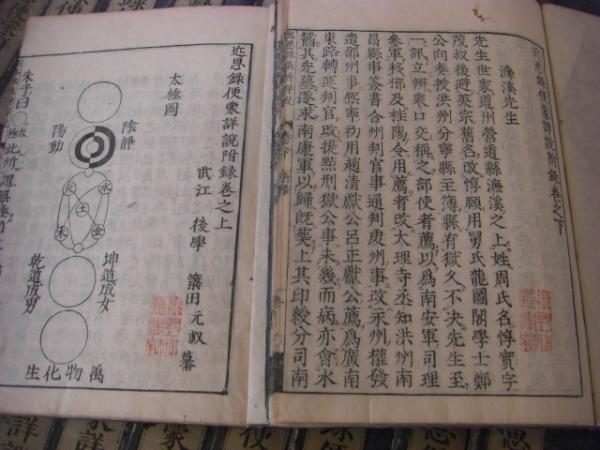 近思錄便蒙詳說附錄卷之下
濂溪先生
先生世家道州營道縣濂溪之上姓周氏名惇實字
茂叔後避英宗舊名改惇頤用舅氏龍圖閣學士鄭
公向奏授洪州分寧縣主簿縣有獄久不決先生至
一訊立辨衆口交稱之部使者薦以爲南安軍司理
參軍移郴及桂陽令用薦者改大理寺丞知洪州南
昌縣事簽書合州判官事通判虔州事改永州權發
遣邵州事熙寧初用趙清獻公呂正獻公薦爲廣南
東路轉運判官改提點刑獄公事未幾而病亦會水
齧其先墓遂求南康軍以歸旣葬上其印綬分司南
近思錄便蒙詳說附錄卷之上
武江 後學 簗田元叔 纂
太極圖
陰靜
陽動
火
水
土
木
金
坤道成女
乾道成男
萬物化生
朱子曰
此所謂